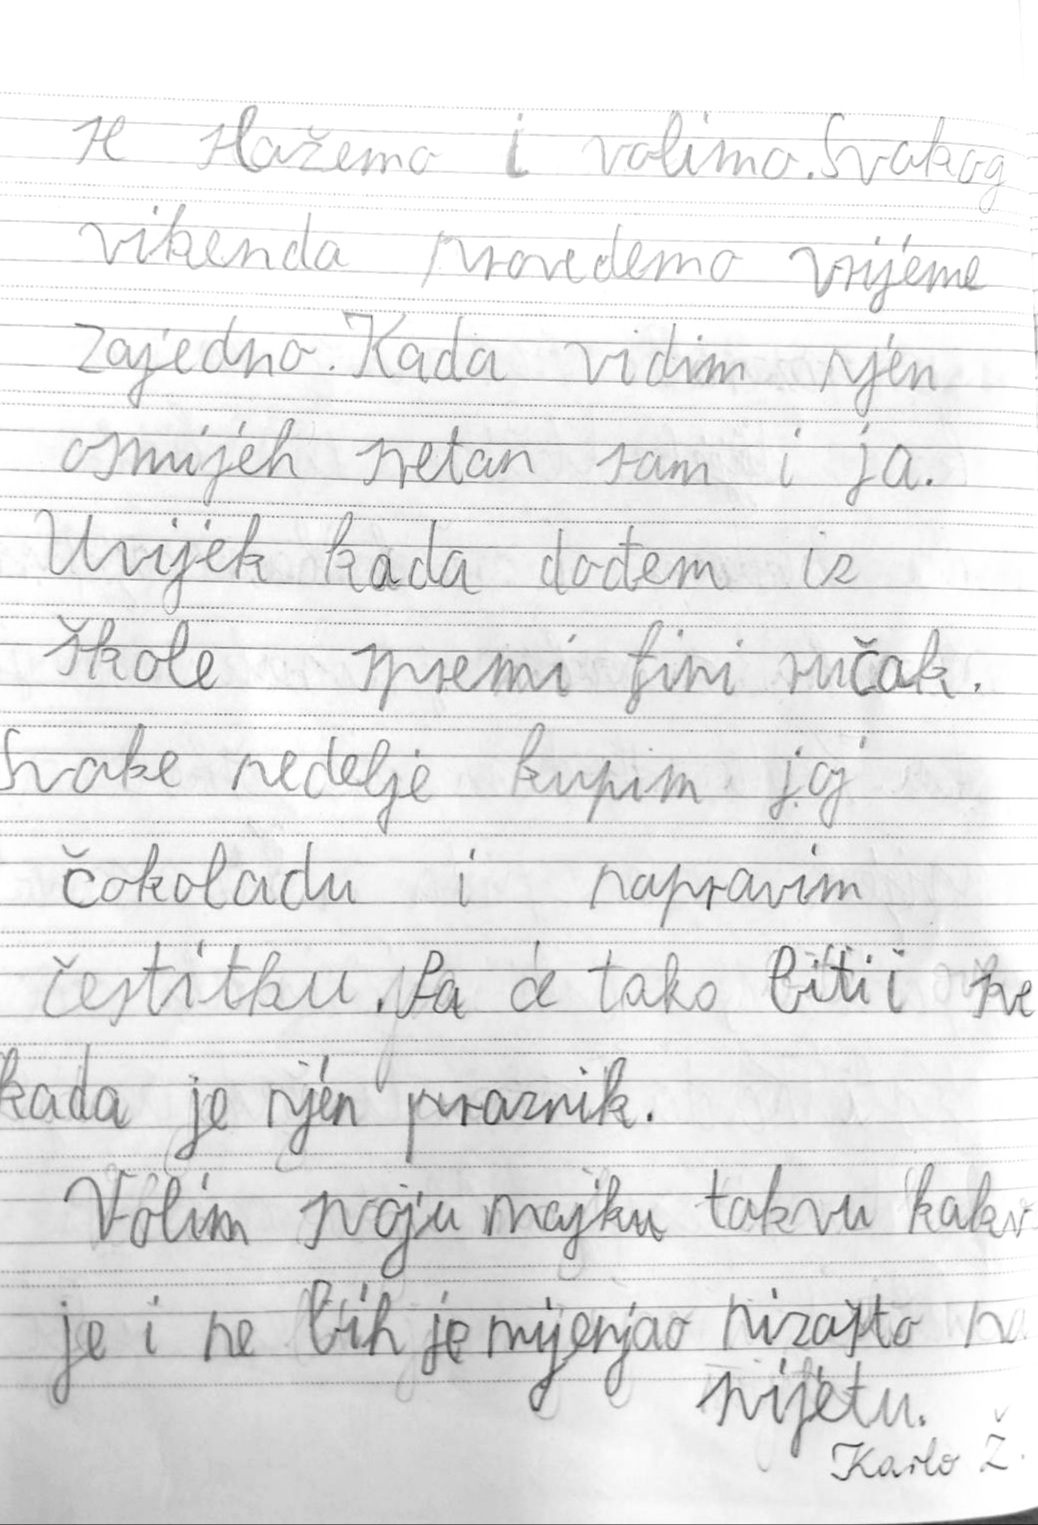 se slažemo i volimo. Svakog
vikenda provedemo vrijeme
zajedno. Kada vidim njen
osmijeh sretan sam i ja.
Uvijek kada dođem iz
škole spremi fini ručak.
Svake nedelje kupim joj
čokoladu i napravim
čestitku. Pa će tako biti i sve
kada je njen praznik.
Volim svoju majku takvu kakv
je i ne bih je mijenjao nizašto na
svijetu.
Karlo Ž.